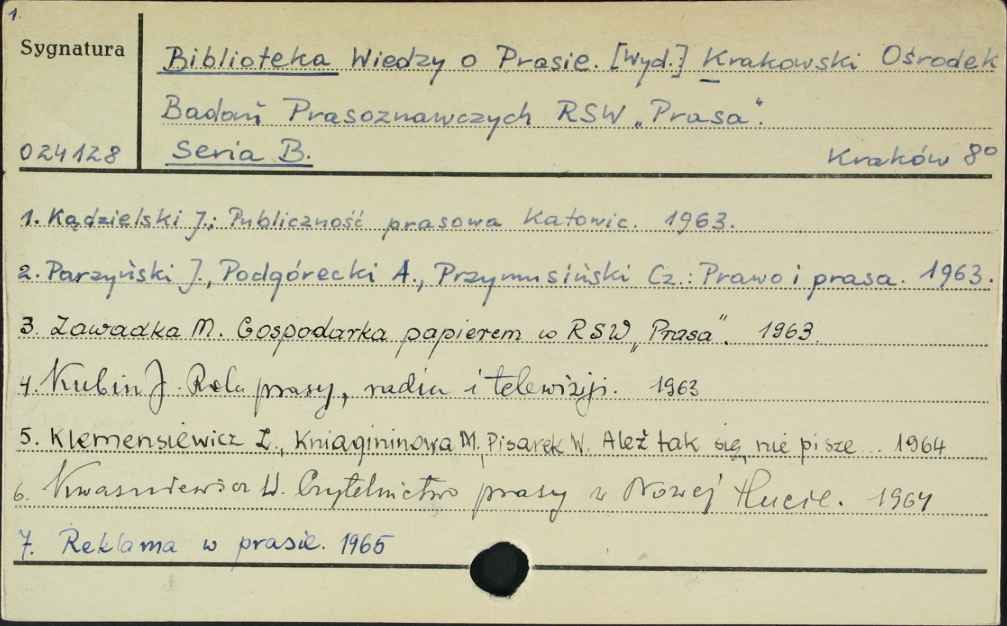 1.
Sygnatura
Biblioteka Wiedzy o Prasie. [Wyd.] Krakowski Ośrodek
Badań Prasoznawczych RSW „Prasa".
024128 Seria B. Kraków 8º
1. Kądzielski J.: Publiczność prasowa Katowic. 1963.
2. Parzyński J., Podgórecki A., Przymusiński Cz.: Prawo i prasa. 1963.
3. Zawadka M. Gospodarka papierem w RSW „Prasa". 1963.
4. Kubin J. Rola prasy, radia i telewizji. 1963
5. Klemensiewicz Z., Kniagininowa M., Pisarek W. Ależ tak się nie pisze... 1964
6. Kwaśniewicz W. Czytelnictwo prasy w Nowej Hucie. 1964
7. Reklama w prasie. 1965